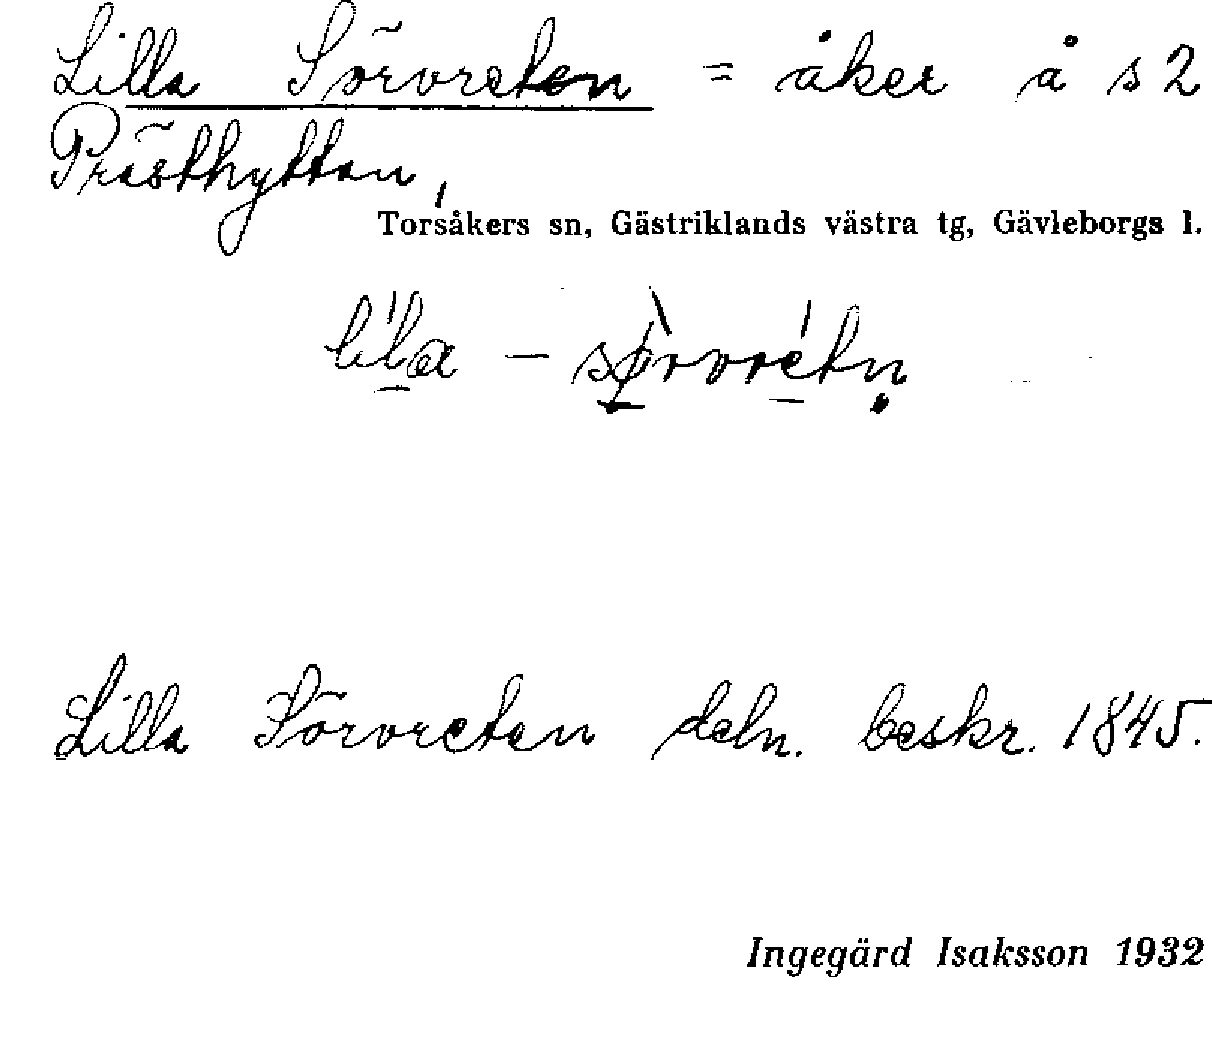 Lilla Sörvreten = åker å s 2
Prästhyttan,
Torsåkers sn, Gästriklands västra tg, Gävleborgs l.
lìla – sø̀rvrétn̥
Lilla Sörvreten deln. beskr. 1845.
Ingegärd Isaksson 1932